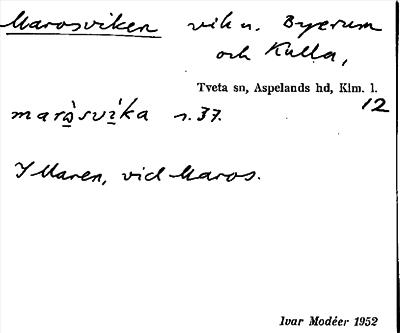 Marosviken vik u. Byerum
och Kulla,
Tveta sn, Aspelands hd, Klm. l.
12
maròsvíka s. 37.
I Maren, vid Maros.
Ivar Modéer 1952